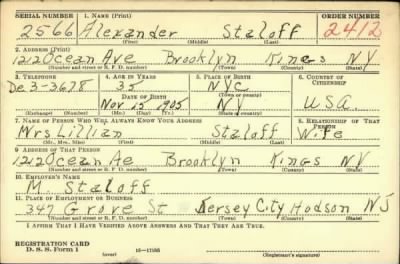 SERIAL NUMBER 1. NAME (Print) ORDER NUMBER
2566 Alexander Staloff 2412
(First) (Middle) (Last)
2. ADDRESS (Print)
1212 Ocean Ave Brooklyn Kings NY
(Number and street or R. F. D. number) (Town) (County) (State)
3. TELEPHONE 4. AGE IN YEARS 5. PLACE OF BIRTH 6. COUNTRY OF CITIZENSHIP
De. 3-3678 35 NYC
DATE OF BIRTH (Town or county)
Nov 15 1905 NY USA
(Exchange) (No.) (Mo.) (Day) (Yr.) (State or country)
7. NAME OF PERSON WHO WILL ALWAYS KNOW YOUR ADDRESS 8. RELATIONSHIP OF THAT PERSON
Mrs Lillian Staloff Wife
(Mr., Mrs., Miss) (First) (Middle) (Last)
9. ADDRESS OF THAT PERSON
1212 Ocean Ae Brooklyn Kings NY
(Number and street or R. F. D. number) (Town) (County) (State)
10. EMPLOYER'S NAME
M. Staloff
11. PLACE OF EMPLOYMENT OR BUSINESS
347 Grove St Jersey City Hudson NJ
(Number and street or R. F. D. number) (Town) (County) (State)
I AFFIRM THAT I HAVE VERIFIED ABOVE ANSWERS AND THAT THEY ARE TRUE.
REGISTRATION CARD
D. S. S. Form 1 (over) 16-17105 (Registrant's signature)